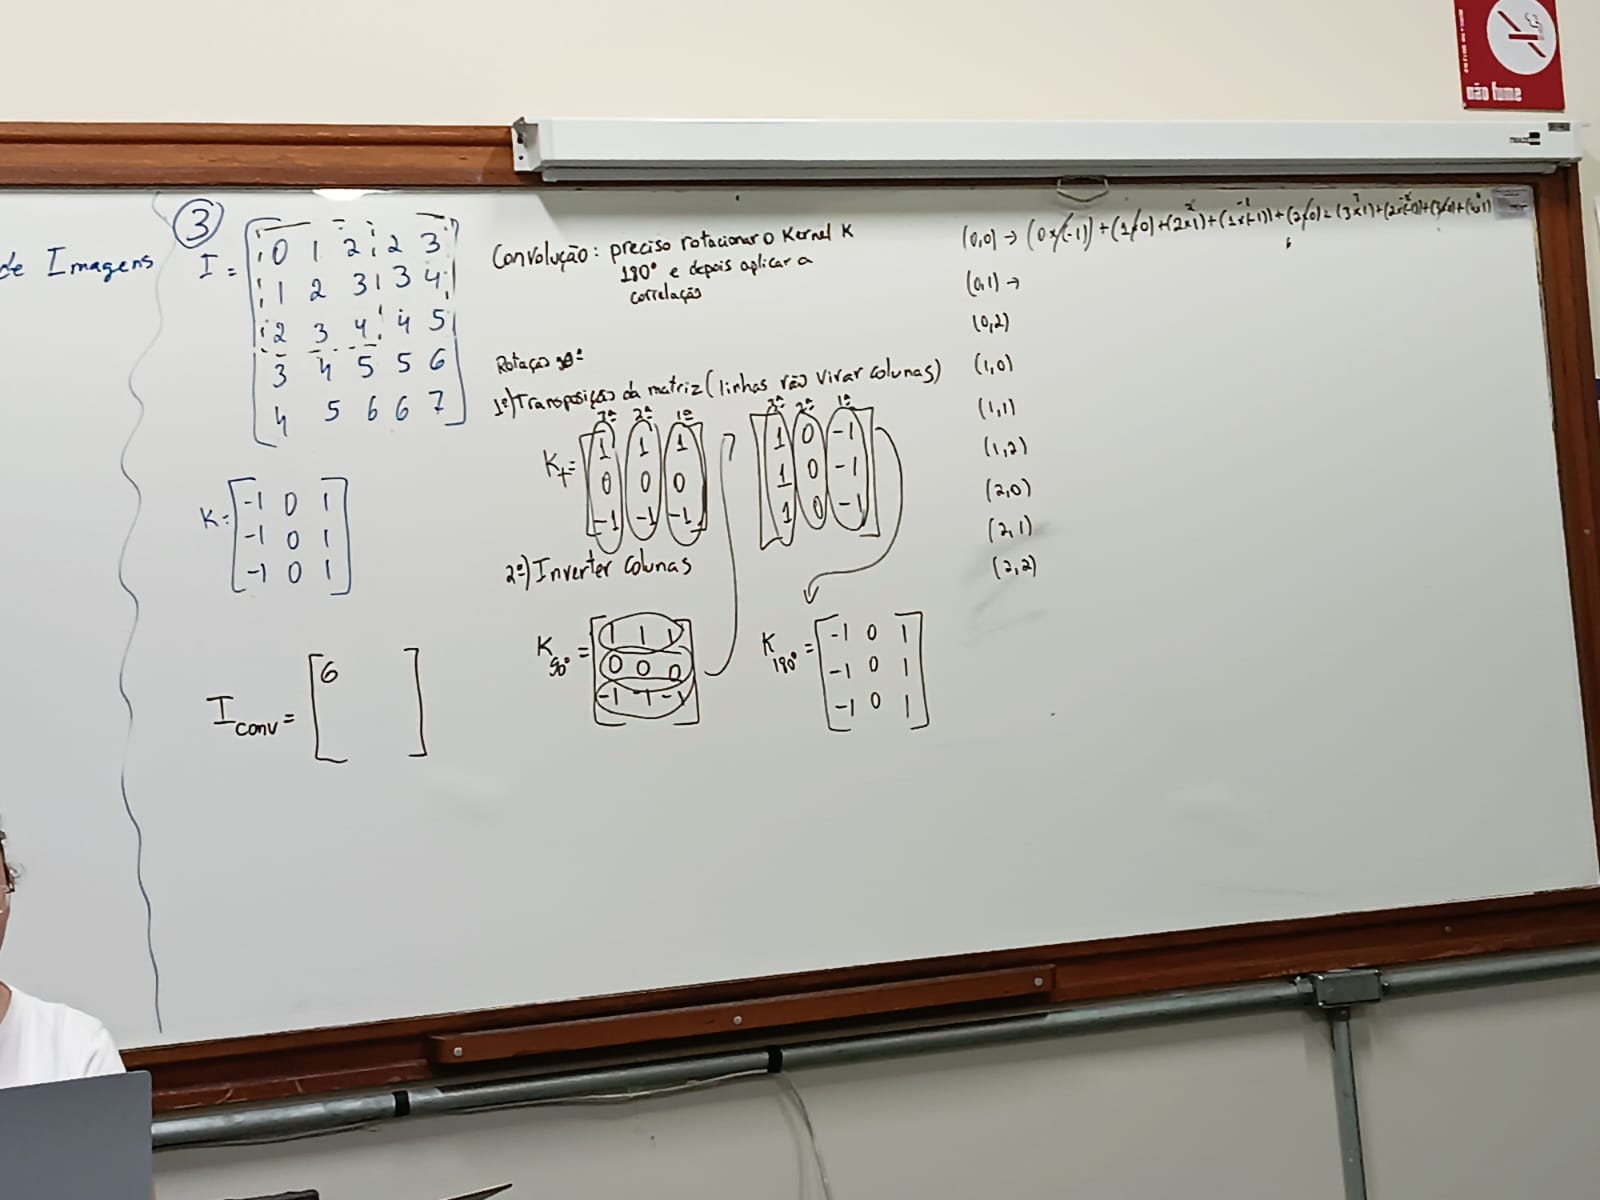 não fume
de Imagens
3
I =
0 1 2 2 3
1 2 3 3 4
2 3 4 4 5
3 4 5 5 6
4 5 6 6 7
K=
-1 0 1
-1 0 1
-1 0 1
I conv =
6
Convolução: preciso rotacionar o Kernel K
180° e depois aplicar a
correlação
Rotação 90°
1º) Transposição da matriz (linhas vão virar colunas)
3ª 2ª 1ª
K+ =
1 1 1
0 0 0
-1 -1 -1
2º) Inverter colunas
K 90° =
1 1 1
0 0 0
-1 -1 -1
3ª 2ª 1ª
1 0 -1
1 0 -1
1 0 -1
K 180° =
-1 0 1
-1 0 1
-1 0 1
(0,0) → (0x(-1)) + (1x0) + (2x1) + (1x(-1)) + (2x0) + (3x1) + (2x(-1)) + (3x0) + (4x1)
(0,1) →
(0,2)
(1,0)
(1,1)
(1,2)
(2,0)
(2,1)
(2,2)